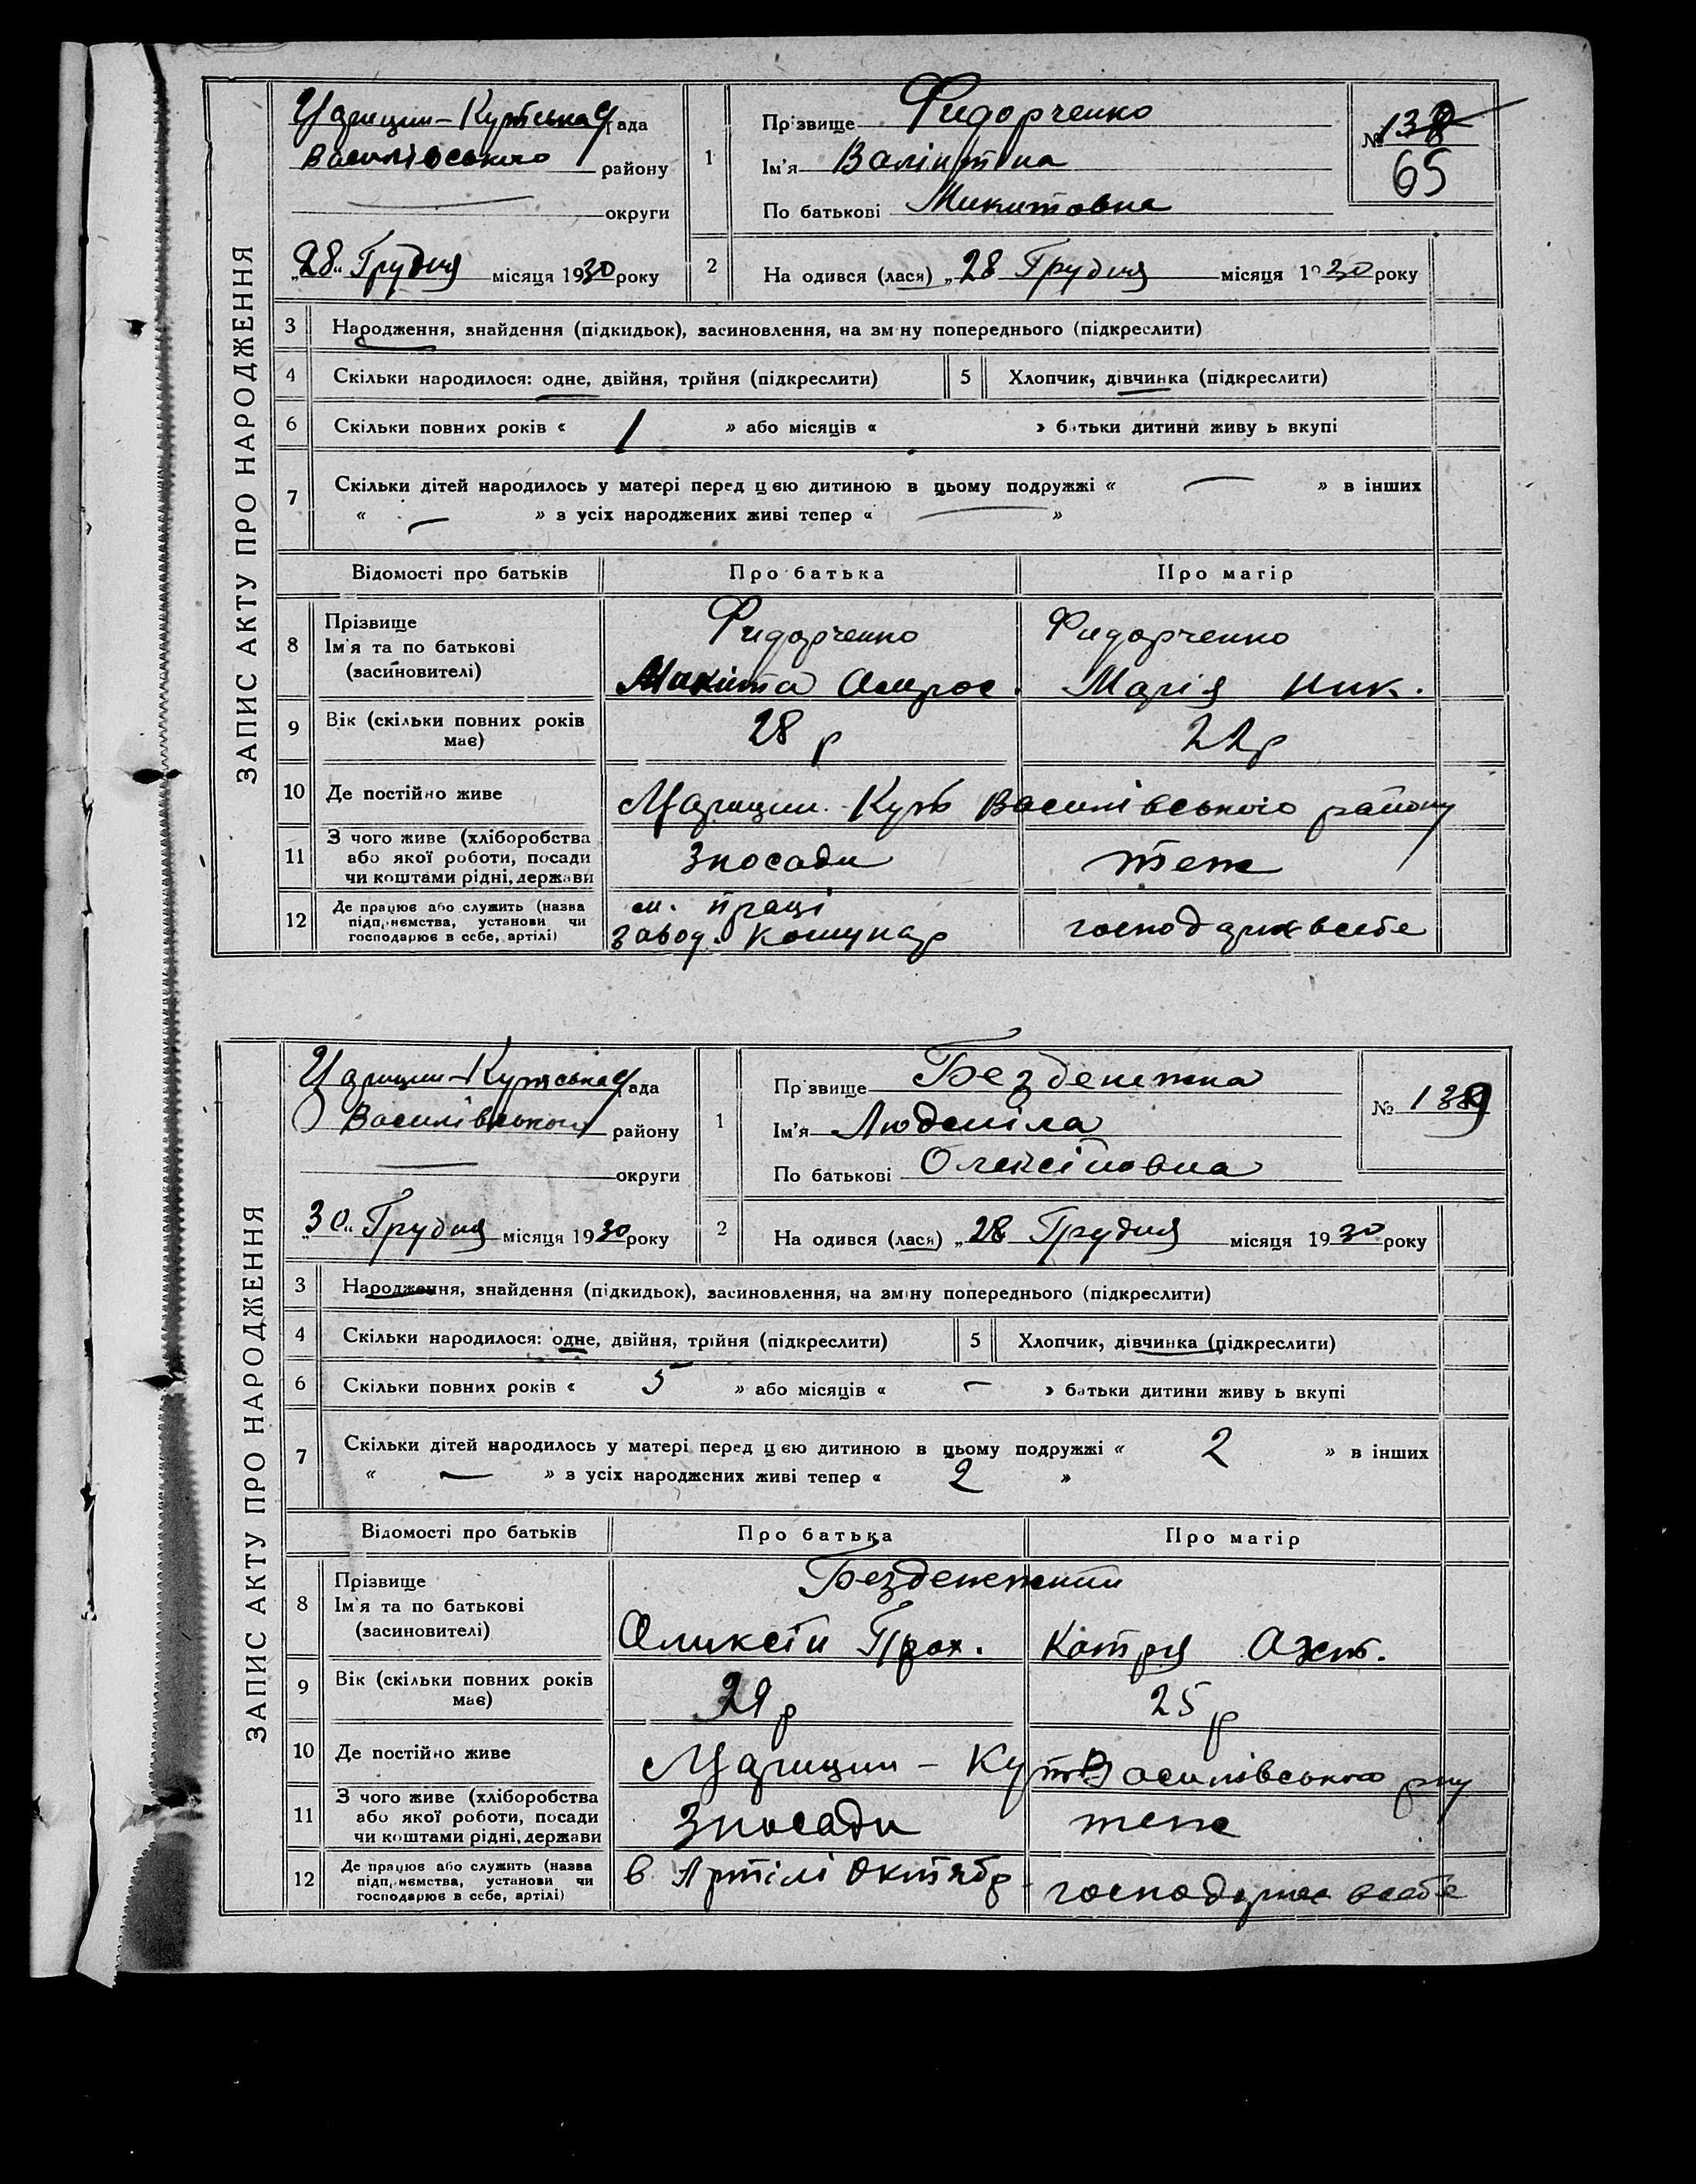 ЗАПИС АКТУ ПРО НАРОДЖЕННЯ
Царицин-Кутська рада
Василівського району
округи
„28“ Грудня місяця 1930 року
1
Прізвище Фидорченко
Ім'я Валінтина
По батькові Микитовна
№ 138
65
2
На одився (лася) „28 Грудня місяця 1930 року
3 Народження, знайдення (підкидьок), засиновлення, на зм ну попереднього (підкреслити)
4 Скільки народилося: одне, двійня, трійня (підкреслити) 5 Хлопчик, дівчинка (підкреслити)
6 Скільки повних років « 1 » або місяців « » батьки дитини живу ь вкупі
7 Скільки дітей народилось у матері перед цєю дитиною в цьому подружжі « — » в інших
« — » з усіх народжених живі тепер « — »
Відомості про батьків Про батька Про матір
8 Прізвище
Ім'я та по батькові
(засиновителі)
Фидорченко Фидорченко
Микита Марія Ник.
9 Вік (скільки повних років має) 28 р 22 р
10 Де постійно живе Царицин-Кут Василівського району
11 З чого живе (хліборобства
або якої роботи, посади
чи коштами рідні, держави
з посади теж
12 Де працює або служить (назва
підприємства, установи чи
господарює в себе, артілі)
праці
завод. Комунар господарює в себе
ЗАПИС АКТУ ПРО НАРОДЖЕННЯ
Царицин-Кутська рада
Василівського району
округи
„30“ Грудня місяця 1930 року
1
Пр звище Безденежна
Ім'я Людміла
По батькові Олексіївна
№ 139
2
На одився (лася) „28 Грудня місяця 1930 року
3 Народження, знайдення (підкидьок), засиновлення, на зміну попереднього (підкреслити)
4 Скільки народилося: одне, двійня, трійня (підкреслити) 5 Хлопчик, дівчинка (підкреслити)
6 Скільки повних років « 5 » або місяців « — » батьки дитини живу ь вкупі
7 Скільки дітей народилось у матері перед цєю дитиною в цьому подружжі « 2 » в інших
« — » з усіх народжених живі тепер « 2 »
Відомості про батьків Про батька Про матір
8 Прізвище
Ім'я та по батькові
(засиновителі)
Безденежни
Оликсій Прох. Катря
9 Вік (скільки повних років має) 29 р 25 р
10 Де постійно живе Царицин-Кут Василівського р-ну
11 З чого живе (хліборобства
або якої роботи, посади
чи коштами рідні, держави
з посади теж
12 Де працює або служить (назва
підприємства, установи чи
господарює в себе, артілі)
в Артілі Октябр. господарює в себе